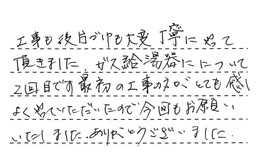 工事も後片づけも大変丁寧にやって
頂きました。ガス給湯器にについて
2回目です最初の工事の方がとても感じ
よくやっていただいたので今回もお願い
いたしました。ありがとうございました。